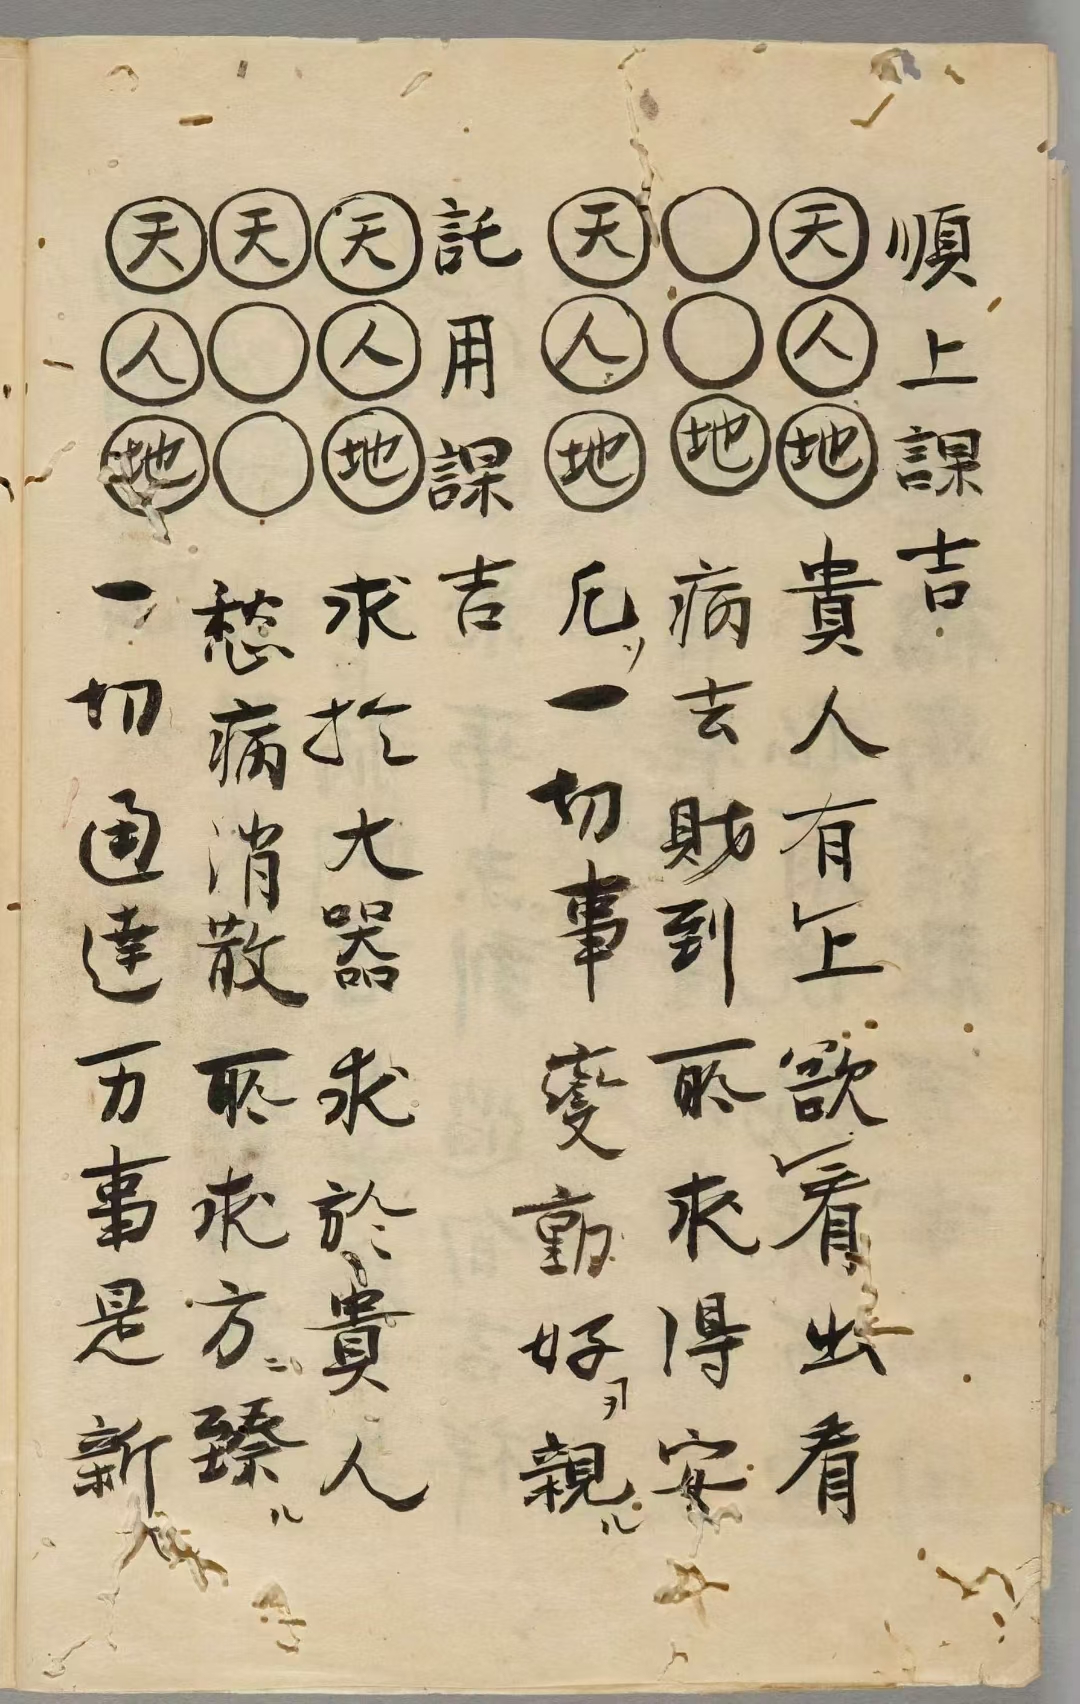 順上課吉
天人地 貴人有上欲看出看
地 病去財到所求得安
天人地 凡ソ一切事變動好ヲ親ル
託用課吉
天人地 求於大器求於貴人
天 愁病消散所求方ニ臻ル
天人地 一切通達万事是新